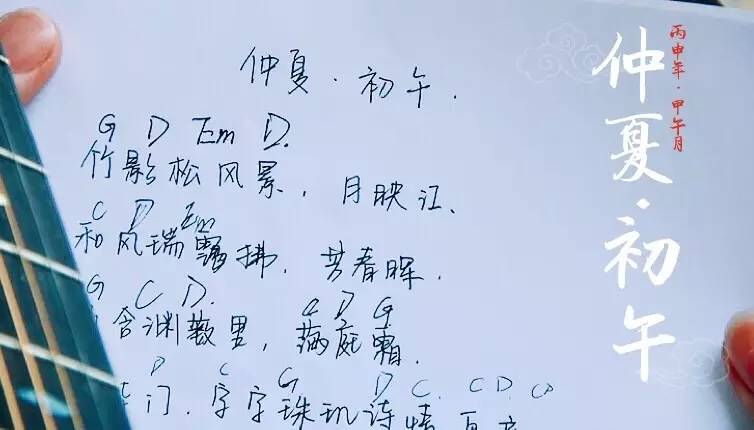 仲夏·初午.
G D Em D.
竹影松风景，月映江、
C D Em
和风瑞露拂，芳春晖.
G C D. C D G
含渊薮里，满庭霜.
D C G D C. CD. CD
门.字字珠玑诗情
丙申年·甲午月
仲夏·初午